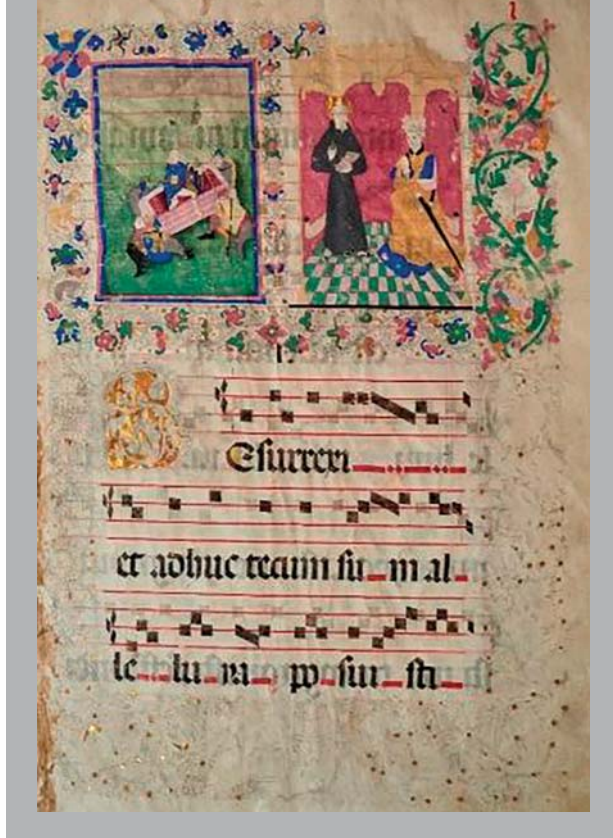 Resurrexi
et adhuc tecum sum al-
le lu ya po sui sti